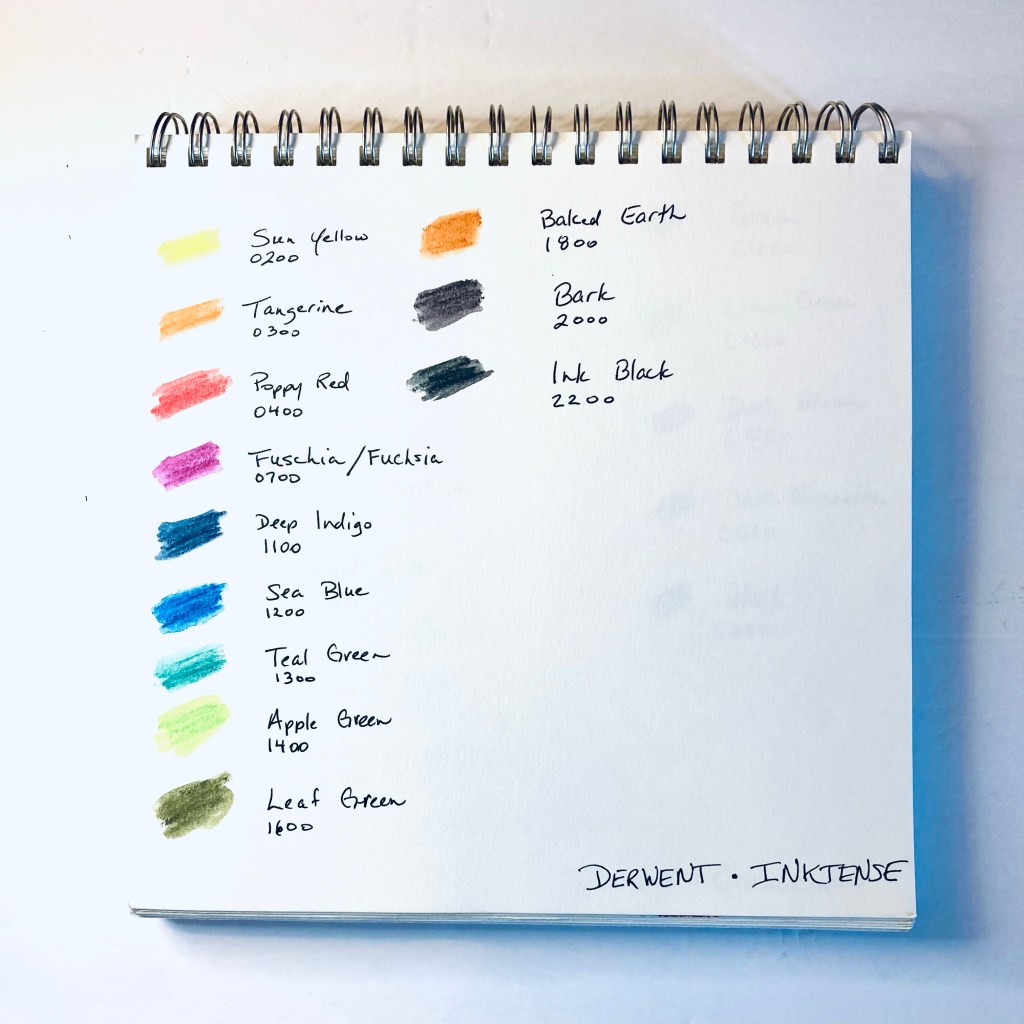 Sun Yellow
0200
Tangerine
0300
Poppy Red
0400
Fuschia/Fuchsia
0700
Deep Indigo
1100
Sea Blue
1200
Teal Green
1300
Apple Green
1400
Leaf Green
1600
Baked Earth
1800
Bark
2000
Ink Black
2200
DERWENT • INKTENSE